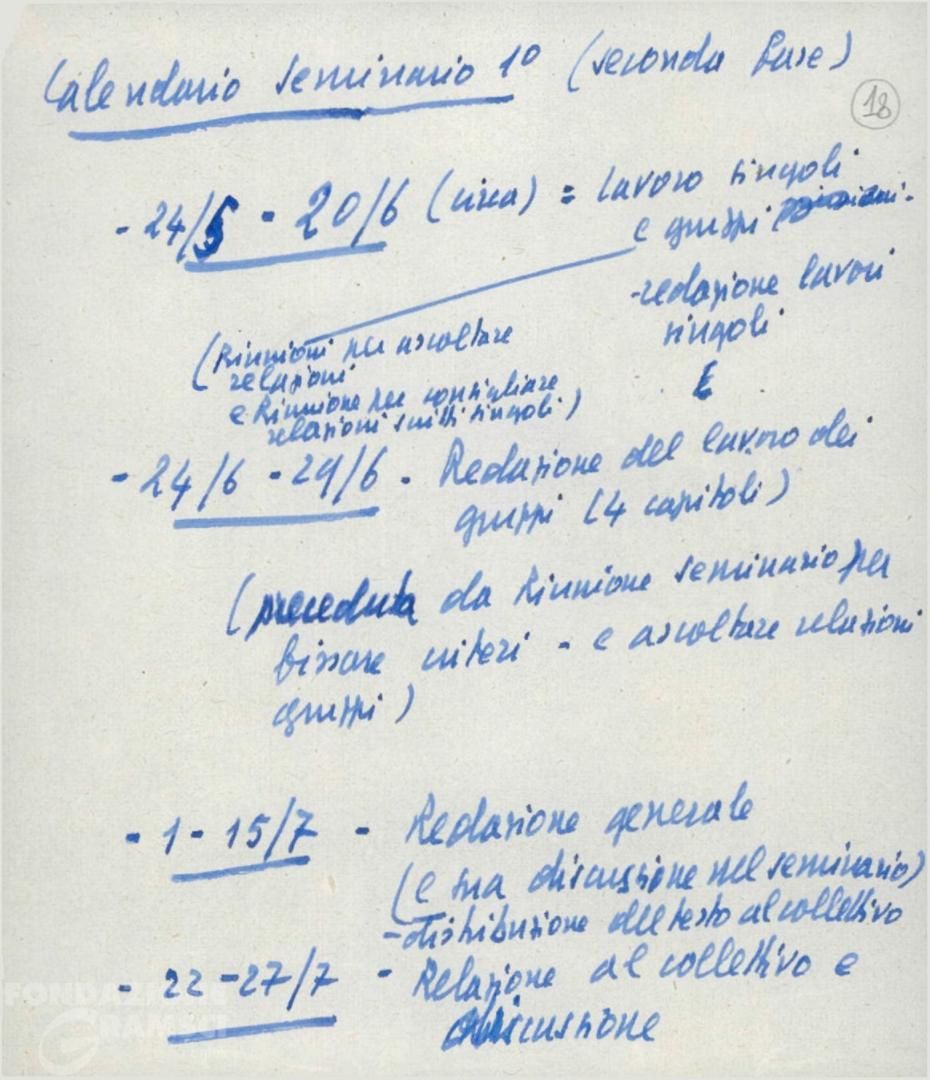 Calendario seminario 1º (seconda fase)
18
- 24/5 - 20/6 (circa) = lavoro singoli
e gruppi
- redazione lavori
singoli
E
(Riunioni per ascoltare
relazioni
e Riunione per consigliare
relazioni scritti singoli)
- 24/6 - 29/6 - Redazione del lavoro dei
gruppi (4 capitoli)
(preceduta da Riunione seminario per
fissare criteri - e ascoltare relazioni
gruppi)
- 1 - 15/7 - Redazione generale
(e sua discussione nel seminario)
- distribuzione del testo al collettivo
- 22 - 27/7 - Relazione al collettivo e
discussione
FONDAZIONE
GRAMSCI